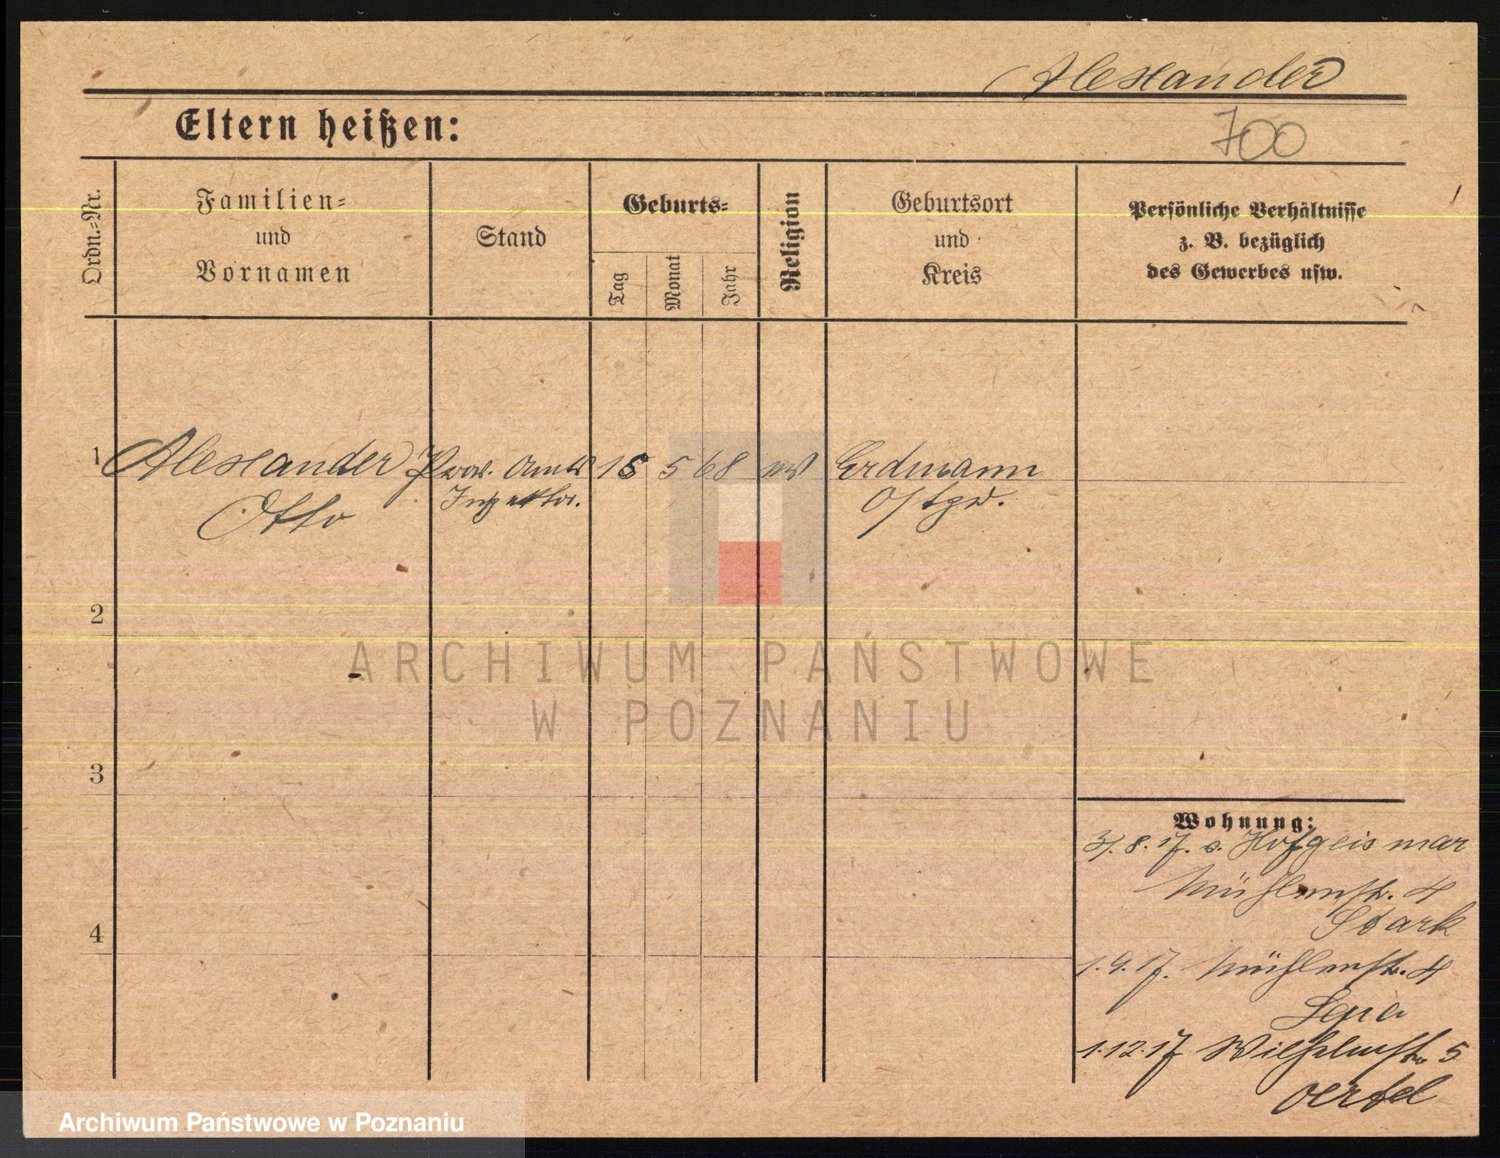 Alexander
Eltern heißen:
700
Ordn.-Nr.
Familien-
und
Vornamen
Stand
Geburts-
Tag
Monat
Jahr
Religion
Geburtsort
und
Kreis
Persönliche Verhältnisse
z. B. bezüglich
des Gewerbes usw.
1 Alexander Prov. Amts 15 5 68 ev Erdmann
Otto Inspektor. Ostpr.
2
3
4
Wohnung:
31.8.17. v. Hofgeismar
Mühlenstr. 4
Stark
1.9.17. Mühlenstr. 4
1.12.17 Wilhelmstr. 5
Oertel
ARCHIWUM PAŃSTWOWE
W POZNANIU
Archiwum Państwowe w Poznaniu